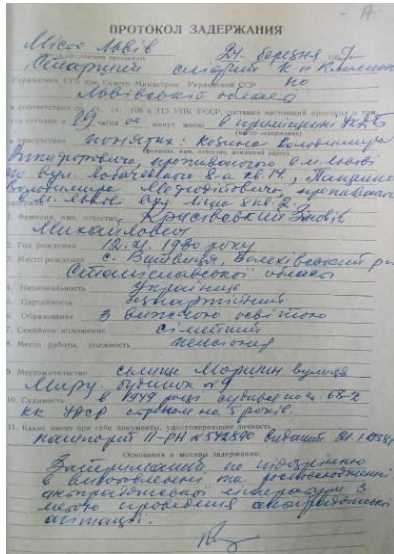 - А
ПРОТОКОЛ ЗАДЕРЖАНИЯ
Місто Львів 24 березня 19
Старший слідчий
Управления КГБ при Совете Министров Украинской ССР по
Львівській області
в соответствии со ст. ст. 106 и 115 УПК УССР, составил настоящий протокол о том,
что сегодня в 19 час минут мною в приміщенні УКДБ
(место задержания)
в присутствии понятих: Козина Володимира
(фамилия, имя, отчество понятых, адреса)
проживаючого в м. Львові
по вул. 8-а кв. 14,
Володимира Методійовича, проживаючого
в м. Львові
Фамилия, имя, отчество Красівський Зіновій
Михайлович
2. Год рождения 12.XI. 1930 року
3. Место рождения с. Витвиця, Долинський р-н
Станіславської області
4. Национальность українець
5. Партийность безпартійний
6. Образование з вищою освітою
7. Семейное положение сімейний
8. Место работы, должность пенсіонер
9. Местожительство селище Моршин вулиця
Миру, будинок № 9
10. Судимость в 1949 році судився по ст. 68-2
КК УРСР строком на 5 років.
11. Какие имеет при себе документы, удостоверяющие личность
паспорт II-РН № 542890 виданий
Основания и мотивы задержания:
Затриманий по підозрінню
в виготовленні та розповсюдженні
антирадянської літератури з
метою проведення антирадянської
агітації.